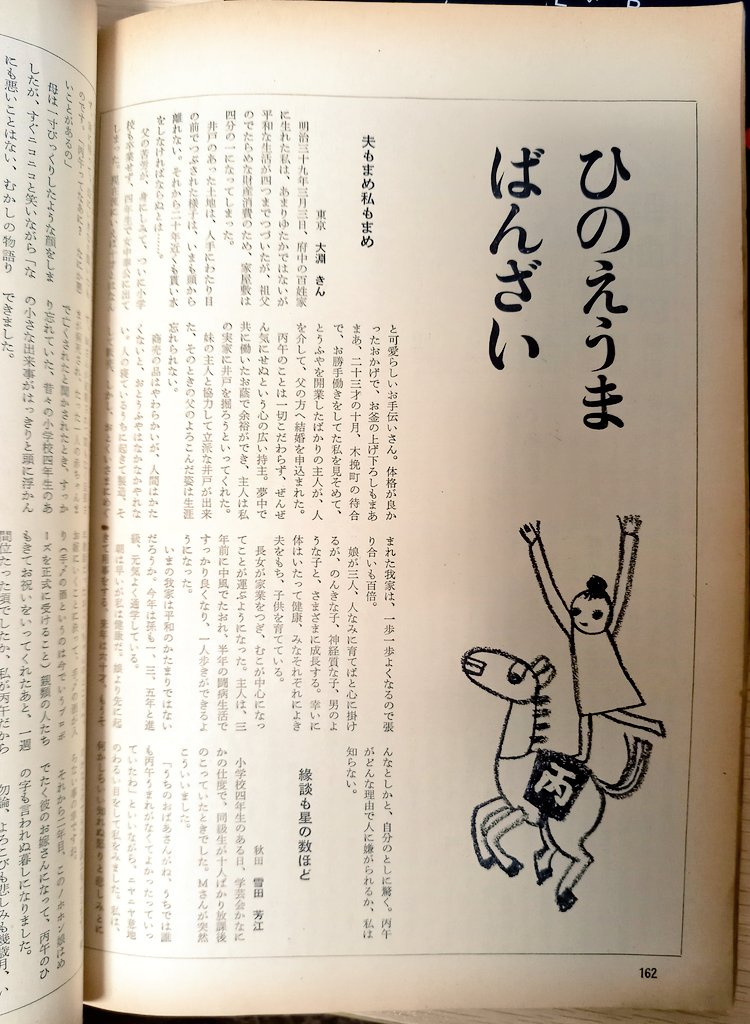 ひのえうま
ばんざい
夫もまめ私もまめ
東京 大淵 きん
明治三十九年三月三日、府中の百姓家
に生れた私は、あまりゆたかではないが
平和な生活が四つまでつづいたが、祖父
のでたらめな財産消費のため、家屋敷は
四分の一になってしまった。
井戸のあった土地は、人手にわたり目
の前でつぶされた様子は、いまも頭から
離れない。それから二十年近くも貰い水
をしなければならぬとは……。
父の苦労が、身にしみて、ついに小学
校も卒業せず、四年生で女中奉公に出て
しまった。
と可愛らしいお手伝いさん。体格が良か
ったおかげで、お釜の上げ下ろしもまあ
まあ、二十三才の十月、木挽町の待合
で、お勝手働きをしてた私を見そめて、
とうふやを開業したばかりの主人が、人
を介して、父の方へ結婚を申込まれた。
丙午のことは一切こだわらず、ぜんぜ
ん気にせぬという心の広い持主。夢中で
共に働いたお蔭で余裕ができ、主人は私
の実家に井戸を掘ろうといってくれた。
妹の主人と協力して立派な井戸が出来
た、そのときの父のよろこんだ姿は生涯
忘れられない。
商売の品はやわらかいが、人間はかた
くないと、おとうふやはなかなかやれな
い。人の寝ているうちに起きて製造、そ
まれた我家は、一歩一歩よくなるので張
り合いも百倍。
娘が三人、人なみに育てばと心に掛け
るが、のんきな子、神経質な子、男のよ
うな子と、さまざまに成長する。幸いに
体はいたって健康、みなそれぞれによき
夫をもち、子供を育てている。
長女が家業をつぎ、むこが中心になっ
てことが運ぶようになった。主人は、三
年前に中風でたおれ、半年の闘病生活で
すっかり良くなり、一人歩きができるよ
うになった。
いまの我家は平和のかたまりではない
だろうか。今年は孫も一、三、五年と進
級、元気よく通学している。
朝は早いが私は健康だ。娘より先に起
んなとしかと、自分のとしに驚く。丙午
がどんな理由で人に嫌がられるか、私は
知らない。
縁談も星の数ほど
秋田 雪田 芳江
小学校四年生のある日、学芸会かなに
かの仕度で、同級生が十人ばかり放課後
のこっていたときでした。Mさんが突然
こういいました。
「うちのおばあさんがね、うちでは誰
も丙午うまれがなくてよかったっていっ
ていたわ」といいながら、ニヤニヤ意地
のわるい目をして私をみました。私は、
丙
162
いことがあるの」
母は一寸びっくりしたような顔をしま
したが、すぐニコニコと笑いながら「な
にも悪いことはない、むかしの物語り
で亡くされたと聞かされたとき、すっか
り忘れていた、昔々の小学校四年生のあ
の小さな出来事がはっきりと頭に浮かん
できました。
ーズを正式に受けること）親類の人たち
もきてお祝いをいってくれたあと、一週
間位たった頃でしたか、私が丙午だから
それから二年目、このノホホン娘はめ
でたく彼のお嫁さんになって、丙午のひ
の字も言われぬ暮しになりました。
勿論、よろこびも悲しみも幾歳月、い